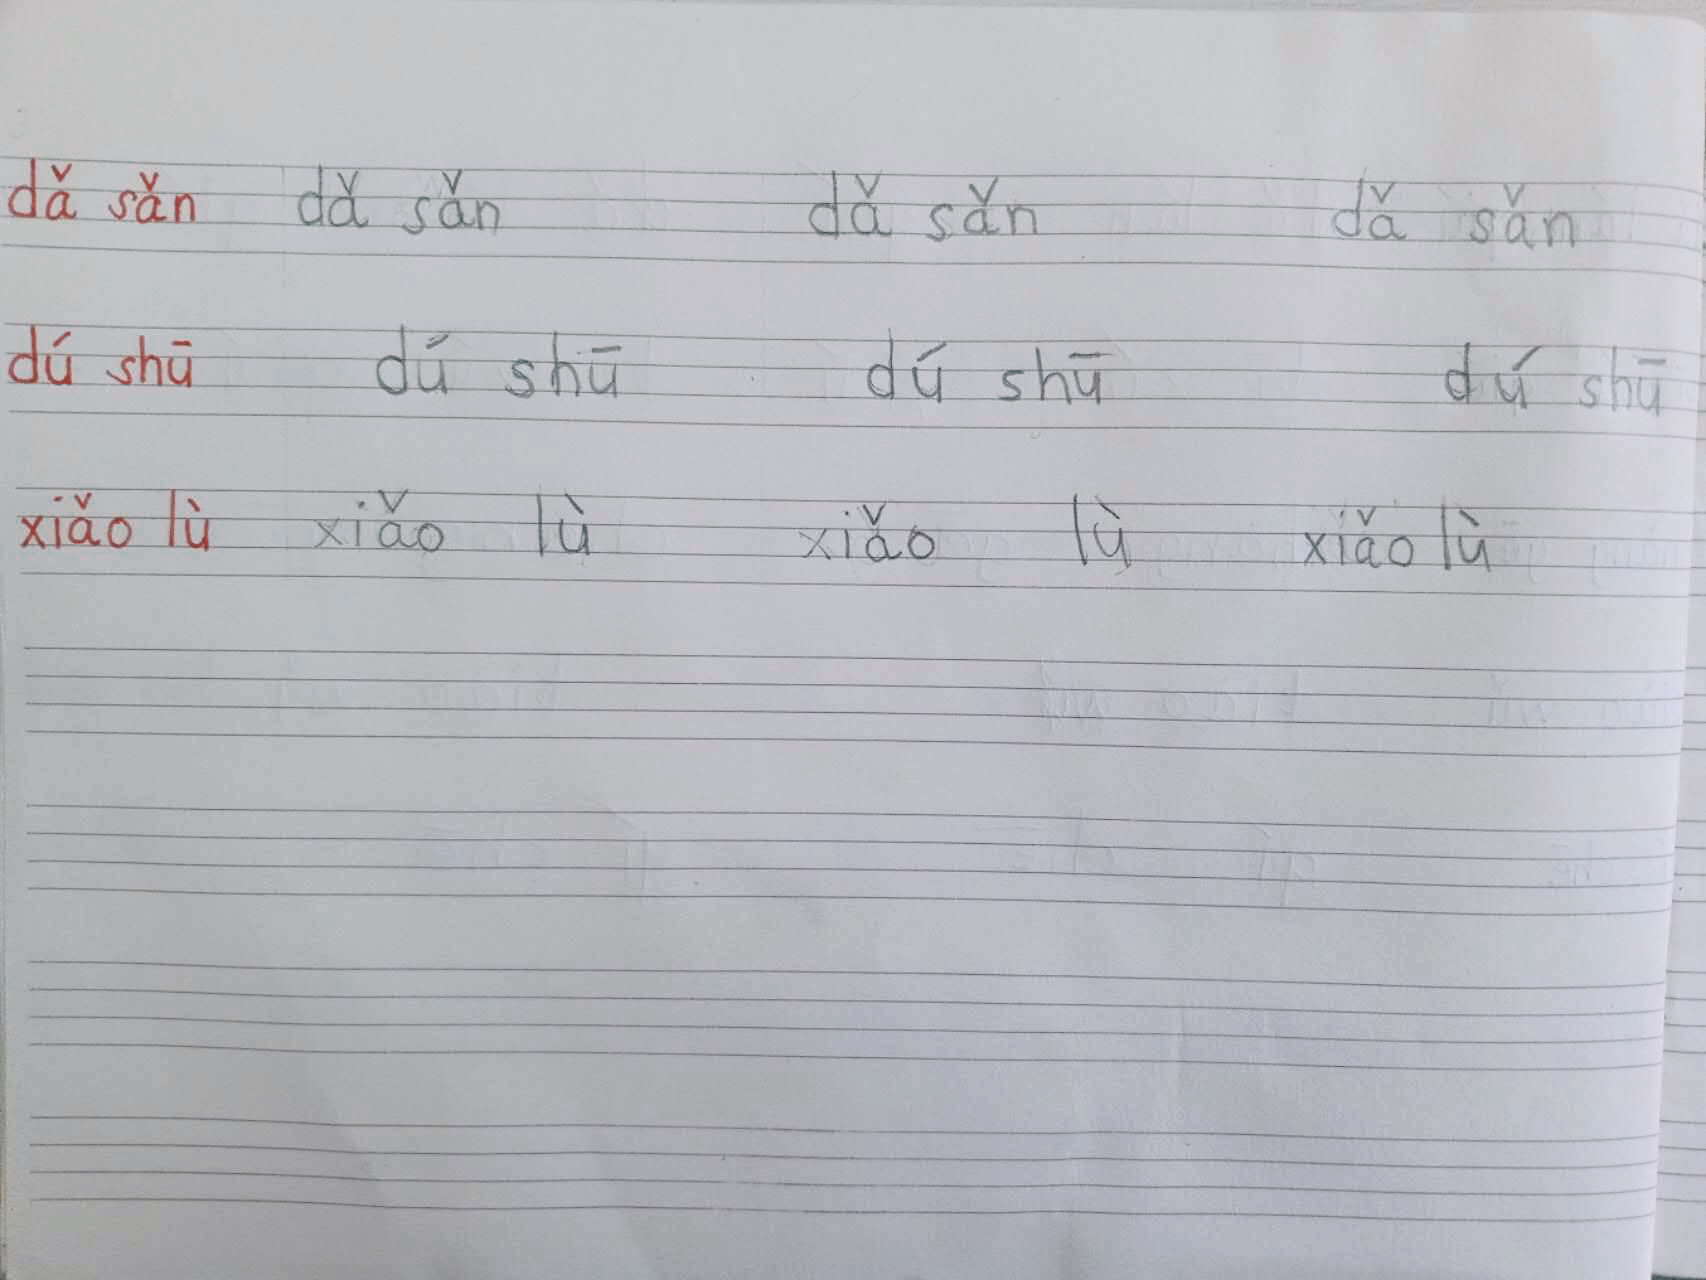 dǎ sǎn dǎ sǎn dǎ sǎn dǎ sǎn
dú shū dú shū dú shū dú shū
xiǎo lù xiǎo lù xiǎo lù xiǎo lù